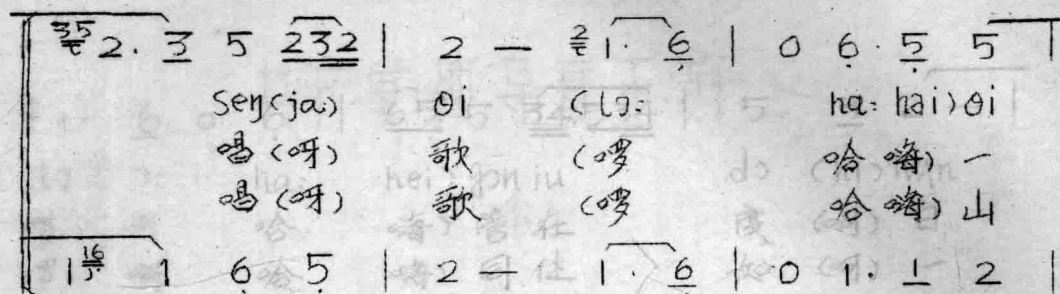 3５ 2. 3 5 232 | 2 — 2 1. 6 | 0 6. 5 5 |
seŋ(ja:) θi (lɔ: ha: hai) θi
唱(呀) 歌 (啰 哈 嗨) 一
唱(呀) 歌 (啰 哈 嗨) 山
1 16 1 6 5 | 2 — 1. 6 | 0 1. 1 2 |